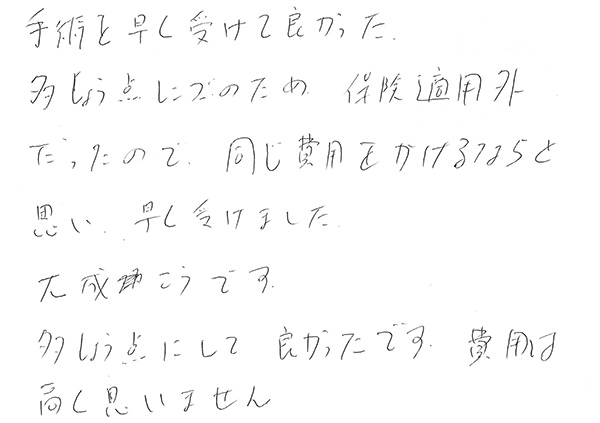 手術を早く受けて良かった.
多しょう点レンズのため 保険適用外
だったので、同じ費用をかけるならと
思い、早く受けました.
大成こうです.
多しょう点にして 良かったです. 費用は
高く思いません